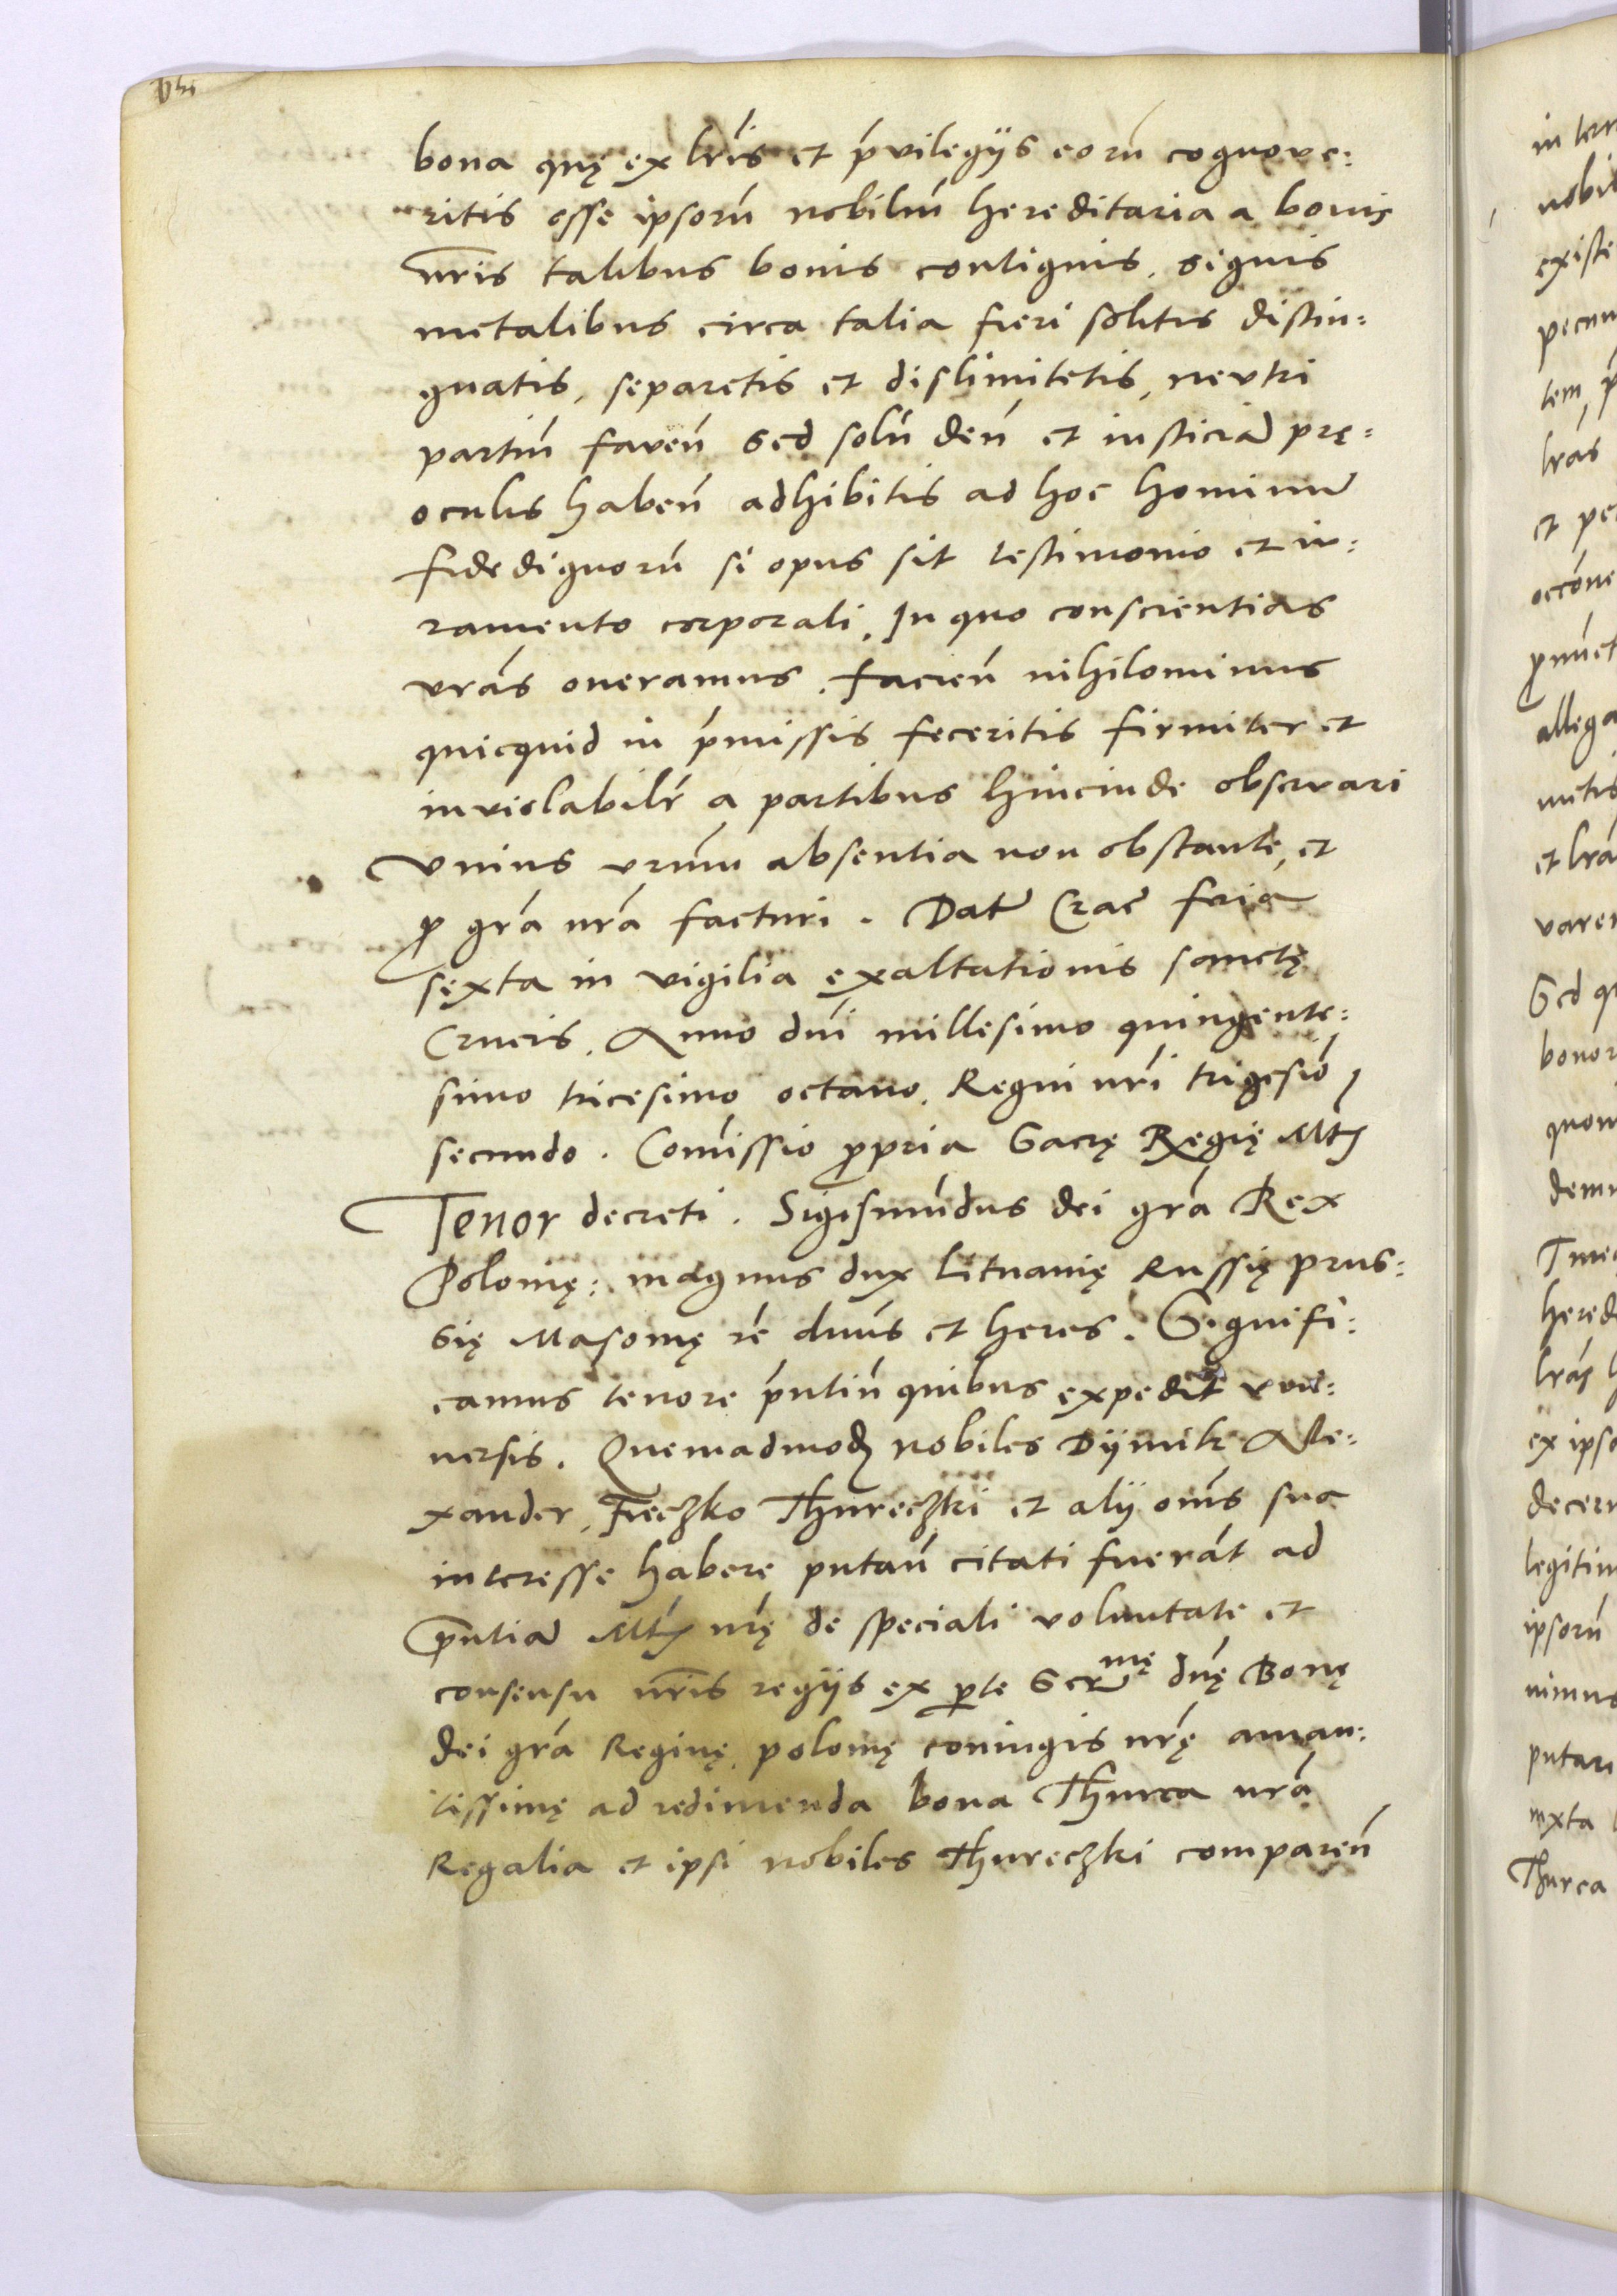 bona quę ex lr̃is et p̃vilegijs eorũ cognove:
ritis esse ipsorũ nobiliũ hereditaria a bonis
nr̃is talibus bonis contiguis, signis
metalibus circa talia fieri solitis distin:
guatis, separetis et dislimitetis, neutri
partiũ faveñ sed solũ deũ et iusticiã prę:
oculis habeñ adhibitis ad hoc hominũ
fidedignorũ si opus sit testimonio et iu:
ramento corporali, In quo conscientias
vrãs oneramus, facieñ nihilominus
quicquid in p̃missis feceritis firmiter et
inviolabilr̃ a partibus hincinde observari
vnius vr̃um absentia non obstante, et
p̱ grã nrã facturi. Datũ Crac̃ feriã
sexta in vigilia exaltationis sanctę
Crucis, Anno dñi millesimo quingente:
simo tricesimo octavo, Regni nr̃i trigesiõ
secundo. Com̃issio p̱pria Sacrę Regię Mtis
Tenor decreti. Sigismũdus dei grã Rex
Polonię: magnus dux Lituanię Russię prus:
się Masovię zc̃ dñus et heres. Signifi:
camus tenore p̃ntiũ quibus expedit vni:
versis. Quemadmodũ nobiles Dijmitr Ale:
xander, Fieczko Thureczki et alij om̃s sua
interesse habere putañ citati fuerãt ad
p̃ntiã Mtis nrę̃ de speciali voluntate et
consensu nr̃is regijs ex p̱te Ser mę dñę Bonę
dei grã Reginę polonię coniugis nrę̃ aman:
tissimę ad redimenda bona Thurca nrã
Regalia et ipsi nobiles Thureczki compareñ
in ter
nobi
existe
pecun
tem, p̃
lras
et pe
occõne
allega
et lrã
varen
Sed q
bonor
quon
demu
hered
lrãs
ex ipso
decern
legitim
ipsorũ
nimus
putan
iuxta
Thurca